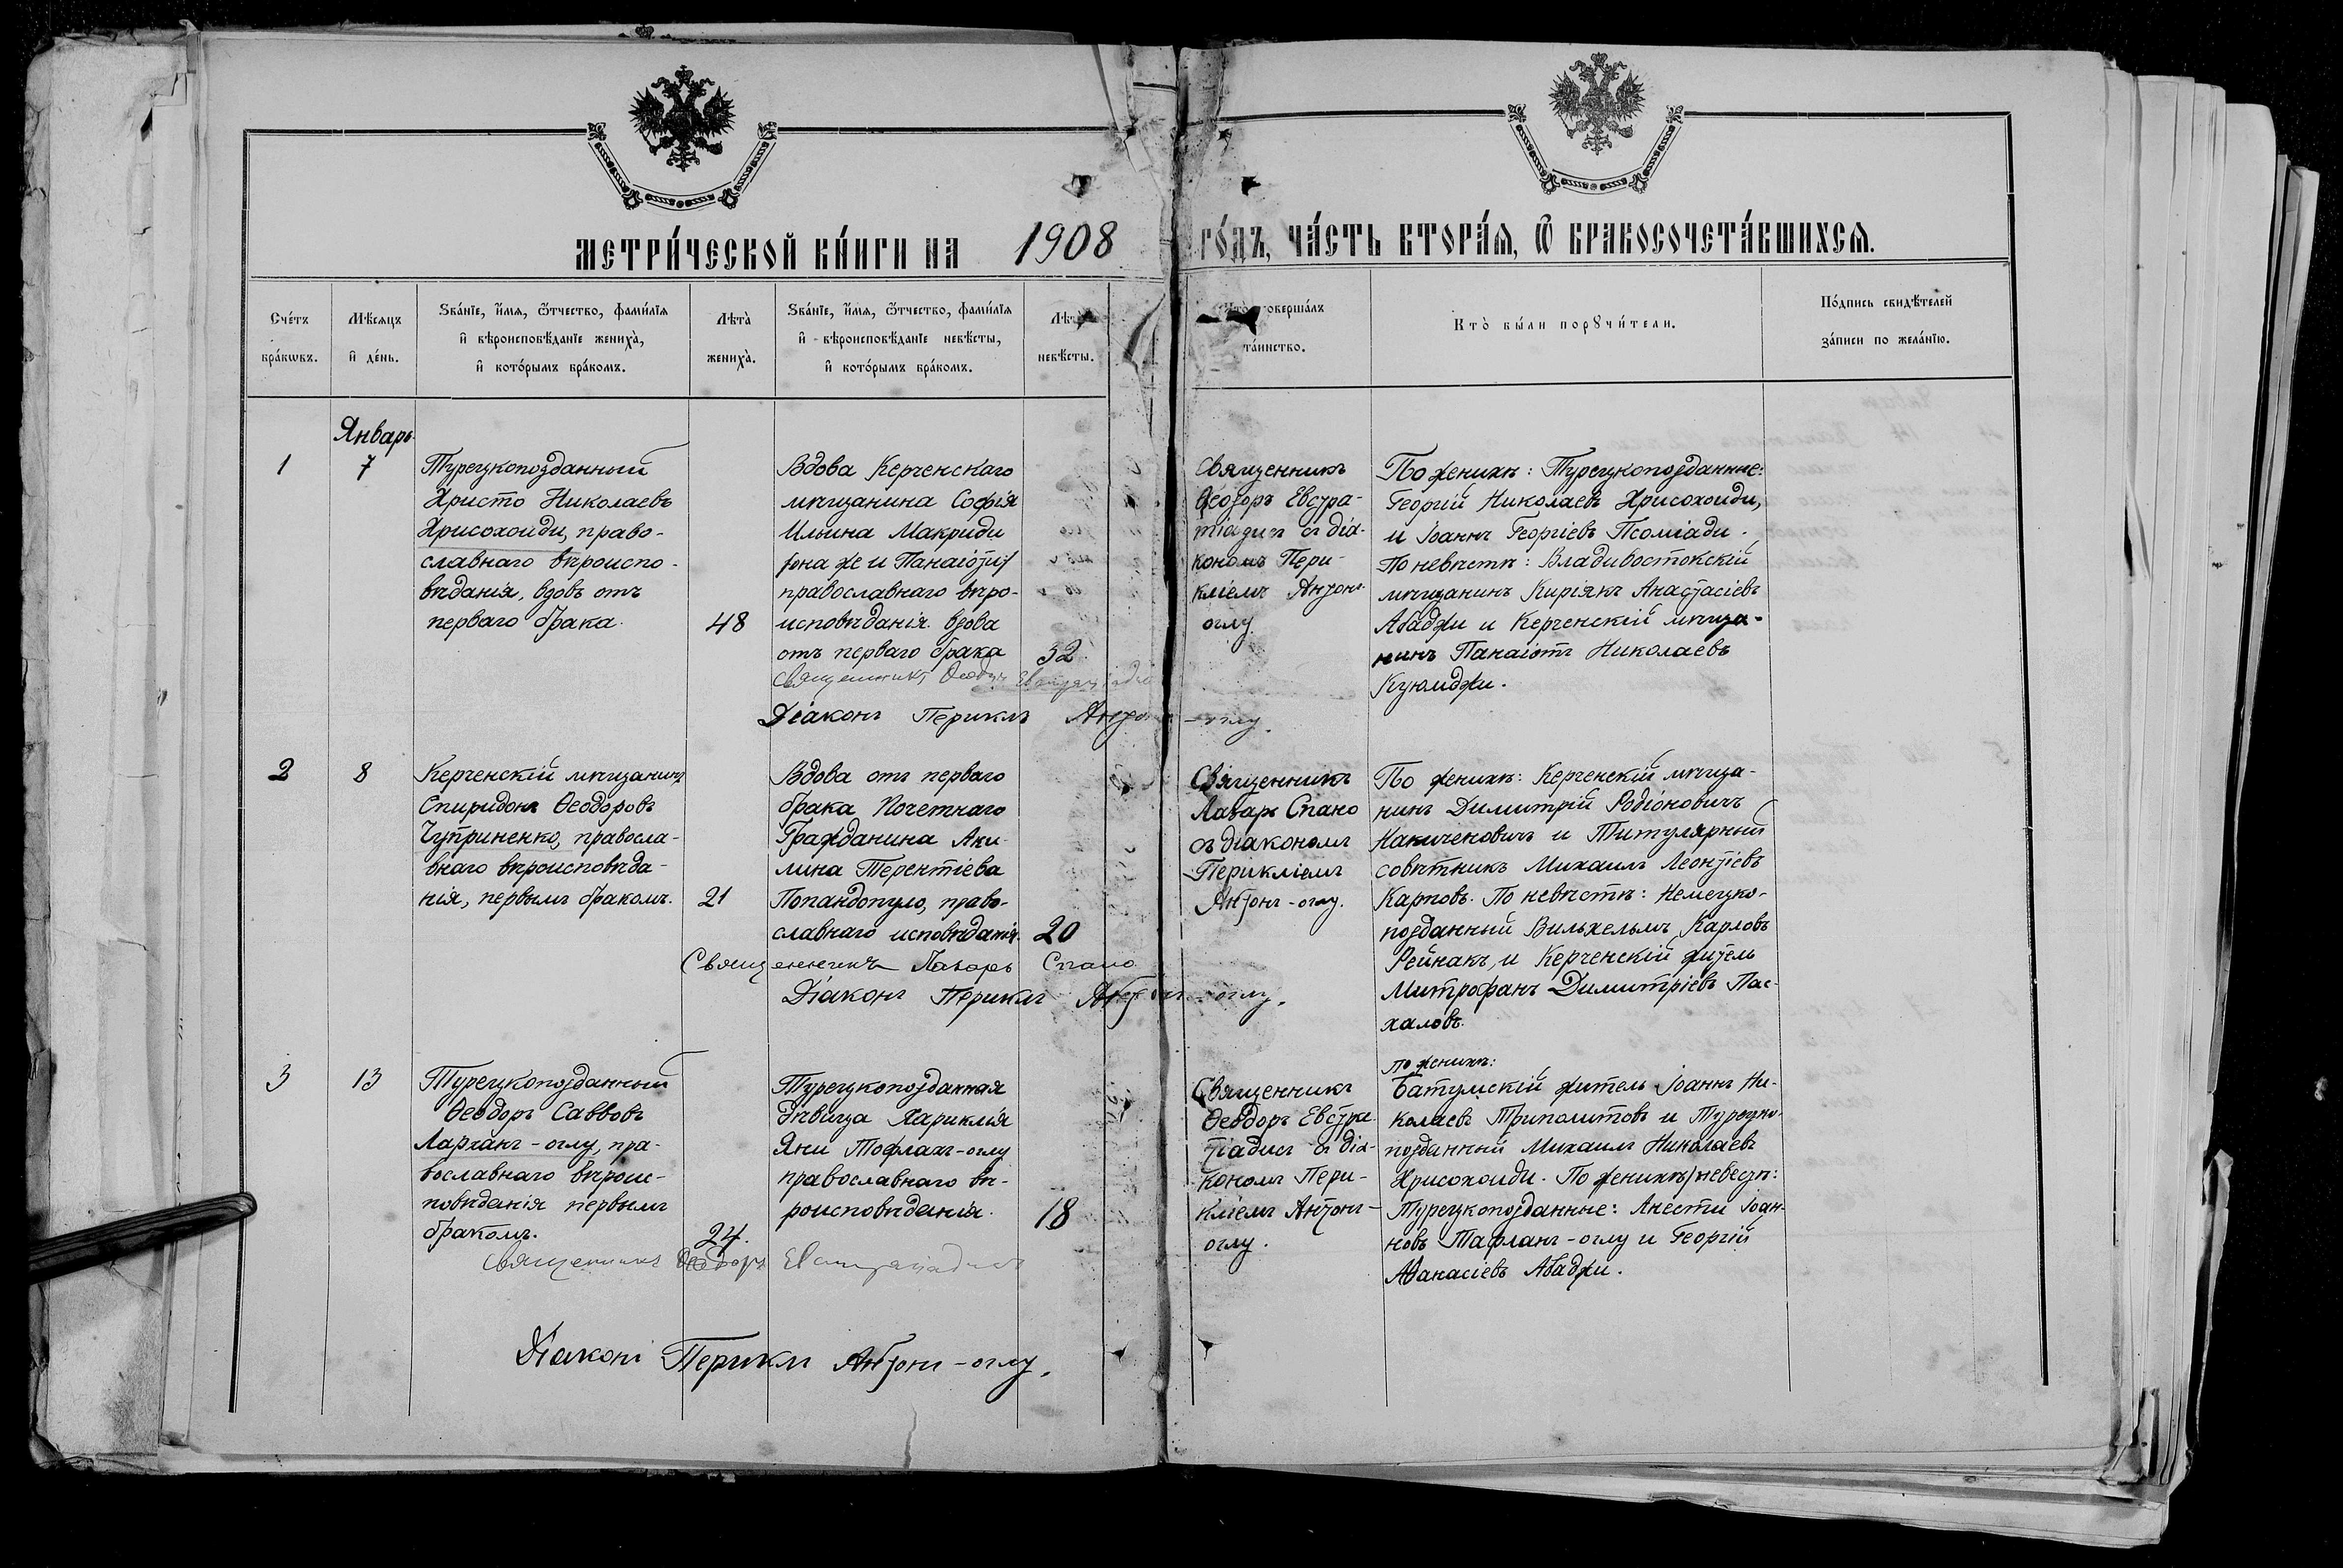 МЕТРИ́ЧЕСКОЙ КНИ́ГИ НА 1908 ГО́ДЪ, ЧА́СТЬ ВТОРА́Ѧ, Ѿ БРАКОСОЧЕТА́ВШИХСѦ.
Сче́тъ
бра́кѡвъ.
Мѣ́сѧцъ
и҆ де́нь.
Ѕва́нїе, и҆́мѧ, ѻ҆́тчество, фами́лїѧ
и҆ вѣроисповѣ́данїе жениха̀,
и҆ кото́рымъ бра́комъ.
Лѣта̀
жениха̀.
Ѕва́нїе, и҆́мѧ, ѻ҆́тчество, фами́лїѧ
и҆ вѣроисповѣ́данїе невѣ́сты,
и҆ кото́рымъ бра́комъ.
Лѣта̀
невѣ́сты.
Кто̀ соверша́лъ
та́инство.
Кто̀ бы́ли порꙋчи́тели.
По́дпись свидѣ́телей
за́писи по жела́нїю.
Январь
1
7
Турецкоподданный
Христо Николаевъ
Хрисохоиди, право-
славнаго вѣроиспо-
вѣданія, вдовъ отъ
перваго брака.
48
Вдова Керченскаго
мѣщанина Софія
Ильина Макриди
/она же и Панаіоти/
православнаго вѣро-
исповѣданія. вдова
отъ перваго брака
32
Священникъ
Ѳеодоръ Евстра-
тіадисъ съ діа-
кономъ Пери-
кліемъ Антонъ-
оглу.
По женихѣ: Турецкоподданные:
Георгій Николаевъ Хрисохоиди,
и Іоаннъ Георгіевъ Псоміади.
По невѣстѣ: Владивостокскій
мѣщанинъ Киріякъ Анастасіевъ
Абаджи и Керченскій мѣща-
нинъ Панаіотъ Николаевъ
Куюмджи.
Священникъ Ѳеодоръ Евстратіадис
Діаконъ Периклъ Антонъ-оглу.
2
8
Керченскій мѣщанинъ
Спиридонъ Ѳеодоровъ
Чуприненко, правосла-
внаго вѣроисповѣда-
нія, первымъ бракомъ.
21
Вдова отъ перваго
брака Почетнаго
Гражданина Аки-
лина Терентіева
Попандопуло, право-
славнаго исповѣданія.
20
Священникъ
Лазарь Спано
съ діакономъ
Перикліемъ
Антонъ-оглу.
По женихѣ: Керченскій мѣща-
нинъ Димитрій Родіоновичъ
Накиченовичъ и Титулярный
совѣтникъ Михаилъ Леонтіевъ
Карповъ. По невѣстѣ: Немецко-
подданный Вильхельмъ Карловъ
Рейнакъ, и Керченскій житель
Митрофанъ Димитріевъ Пас-
халовъ.
Священникъ Лазарь Спано
Діаконъ Периклъ Антонъ-оглу.
3
13
Турецкоподданный
Ѳеодоръ Саввовъ
Ларханъ-оглу, пра-
вославнаго вѣроис-
повѣданія первымъ
бракомъ.
24.
Турецкоподданная
дѣвица Хариклія
Яни Тофланъ-оглу
православнаго вѣ-
роисповѣданія.
18
Священникъ
Ѳеодоръ Евстра-
тіадисъ съ діа-
кономъ Пери-
кліемъ Антонъ-
оглу.
По женихѣ:
Батумскій житель Іоаннъ Ни-
колаевъ Триполитовъ и Турецко-
подданный Михаилъ Николаевъ
Хрисохоиди. По женихѣ/невестѣ:
Турецкоподданные: Анести Іоан-
новъ Тафланъ-оглу и Георгій
Аѳанасіевъ Абаджи.
Священникъ Ѳеодоръ Евстратіадисъ
Діаконъ Периклъ Антонъ-оглу.